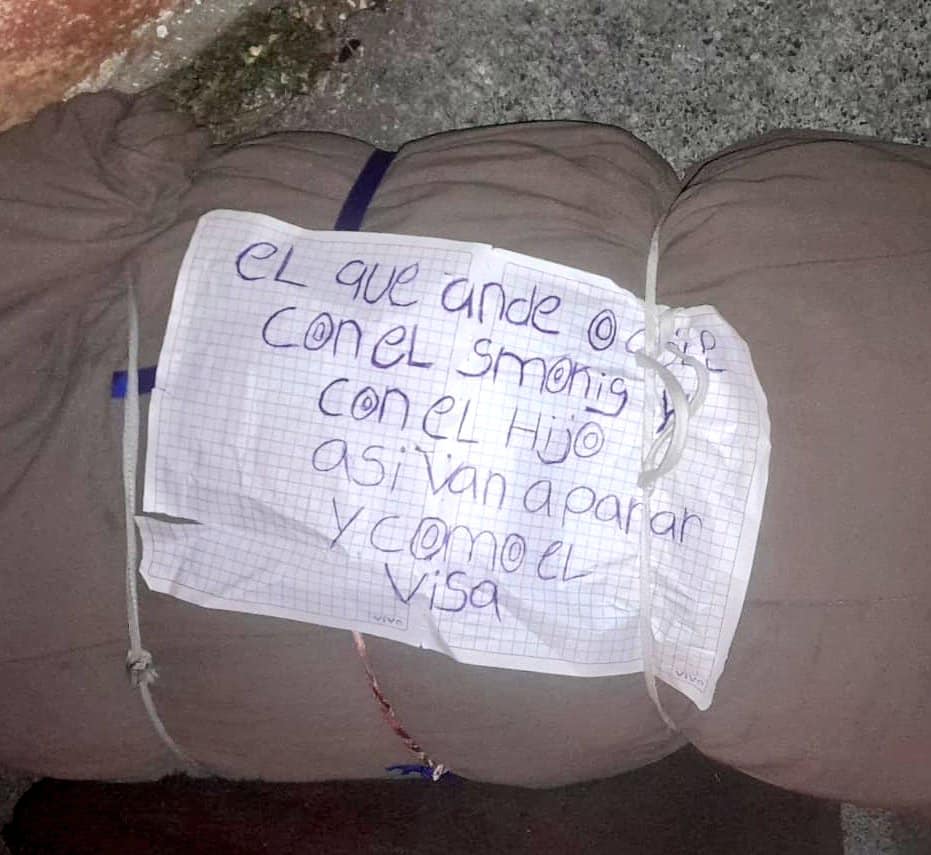 eL que ande o
con eL smonig y
con eL Hijo
asi van a parar
y como eL
visa
vivo
vivo